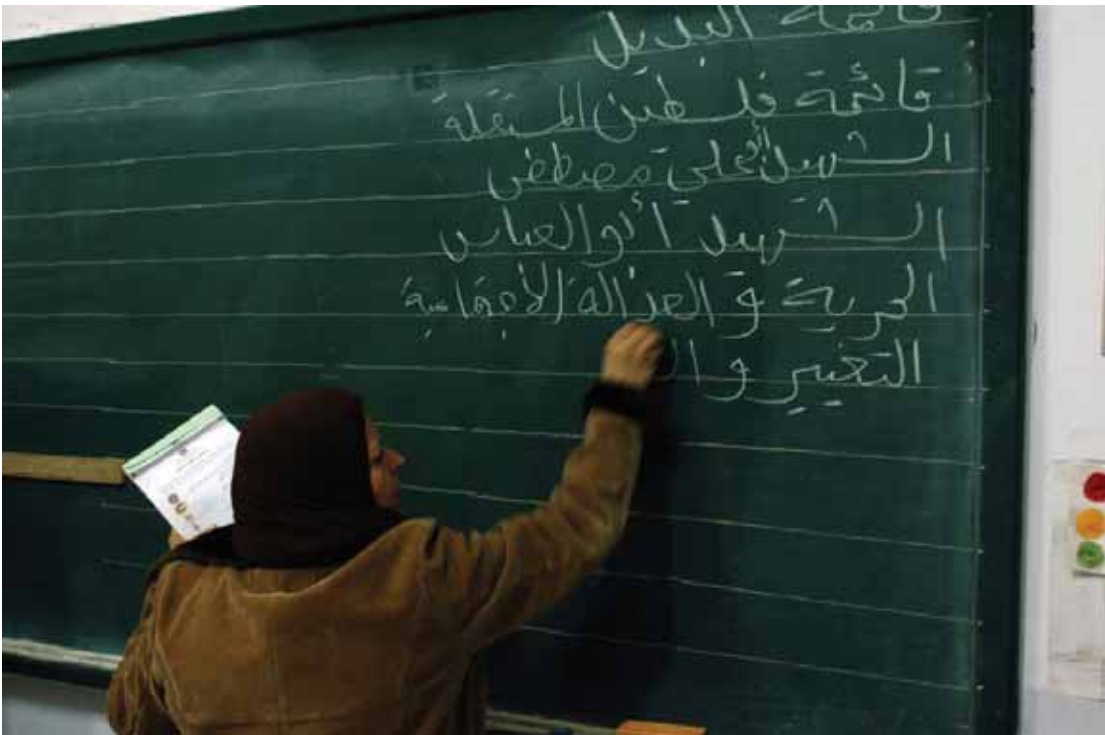 قائمة البديل
قائمة فلسطين المستقلة
الشهيد أبو علي مصطفى
الشهيد أبو العباس
الحرية و العدالة الاجتماعية
التغيير و ال